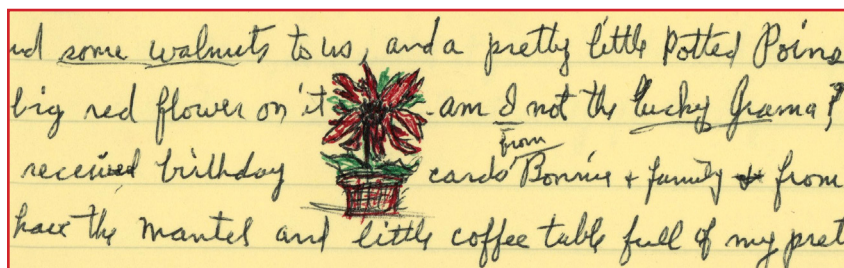 nd some walnuts to us, and a pretty little Potted Poins
big red flower on it - am I not the lucky Grama!
from
received birthday cards Bonnie + family + from
have the mantel and little coffee table full of my pret